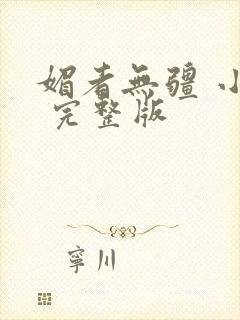 媚者無疆 小
完整版
寧川